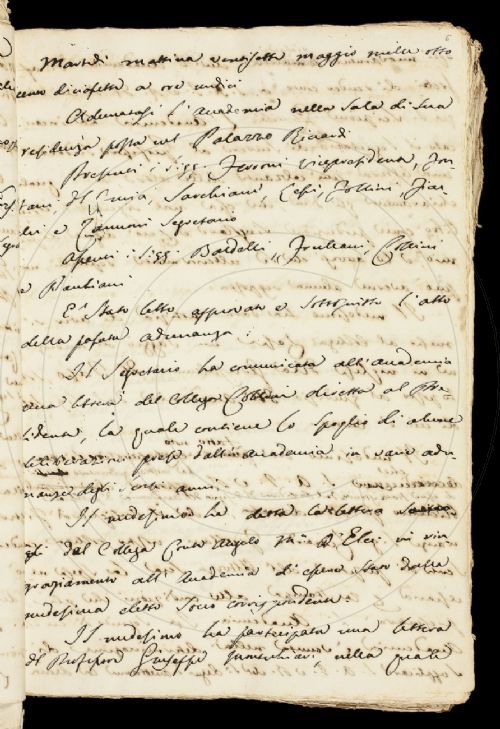 6
Martedì mattina ventisette maggio mille otto
cento diciasette a ore undici
Adunatasi l'Accademia nella Sala di Sua
residenza posta nel Palazzo Ricardi
Presenti i Sigg. Ferroni vicepresidente, Fon
tani, Del Furia, Sarchiani, Lessi, Follini,
e Zannoni Segretario
Assenti i Sigg. Baldelli, Fiulliani, Collini
e
E' stato letto approvato e sottoscritto l'atto
della passata adunanza.
Il Segretario ha comunicata all'Accademia
una lettera del Collega Collini diretta al Pre-
sidente, la quale contiene lo spoglio di alcune
deliberazioni prese dall'Accademia in varie adu-
nanze degli scorsi anni.
Il medesimo ha detta la lettera
del Collega Conte Angelo Ma. D'Elci in rin
graziamento all'Accademia d'essere stato dalla
medesima eletto Socio corrispondente.
Il medesimo ha partecipata una lettera
del Professore Giuseppe nella quale